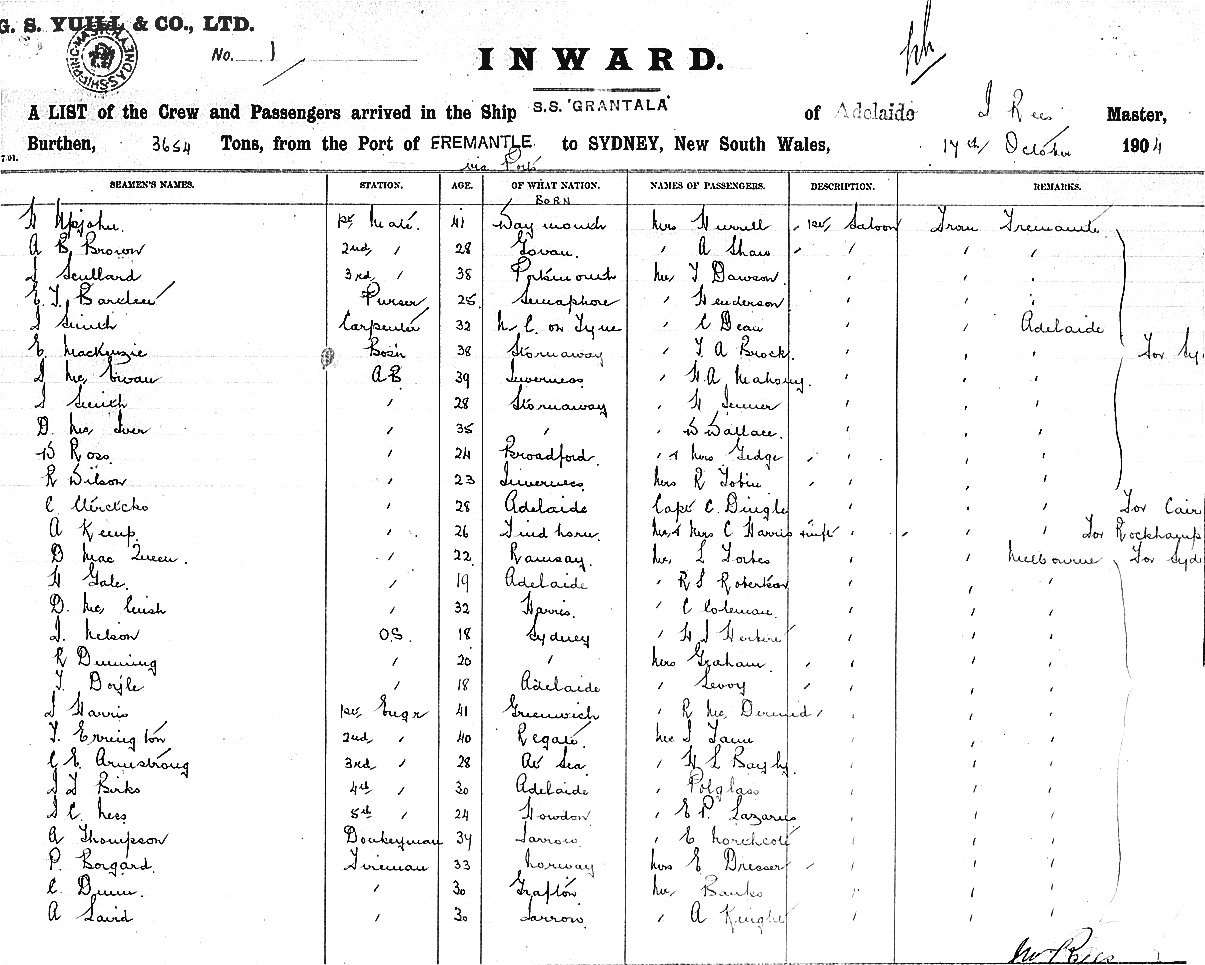 G. S. YUILL & CO., LTD.
No. 1
INWARD.
A LIST of the Crew and Passengers arrived in the Ship S.S. 'GRANTALA' of Adelaide J Rees Master,
Burthen, 3654 Tons, from the Port of FREMANTLE to SYDNEY, New South Wales, 17th October 1904
7.01. via Ports
SEAMEN'S NAMES. STATION. AGE. OF WHAT NATION. NAMES OF PASSENGERS. DESCRIPTION. REMARKS.
BORN
Upjohn. 1st Mate. 41 Mrs 1st, Saloon From Fremantle
A B Brown 2nd, " 28 Govan. " A Shaw " " " "
J Scullard 3rd, " 38 Portsmouth Mr, T Dawson " " "
Purser 25 Semaphore " Henderson " " "
J Smith Carpenter 32 N. C. on Tyne " C Dean " " Adelaide
E. Mackenzie Bos'n 38 Stornaway " T A Brock. " " " For Sy
A B 39 Inverness " Mahony. " " "
J Smith " 28 Stornaway " " " "
D. Mc Iver " 35 " " Wallace. " " "
Ross. " 24 Broadford. " & Mrs Gedge " " " "
R Wilson " 23 Inverness. Mrs R Tobin " " " "
C. " 28 Adelaide Capt C. Dingle " " " For Cair
A Kemp. " 26 Findhorn. Mr, & Mrs C Harris " " " For Rockhamp
D Mac Queen. " 22 Ramsay. Mr, L Forbes " " Melbourne For Syd
H Gale. " 19 Adelaide " R S Robertson " " "
D. Mc " 32 Harris. " C Coleman. " " "
J. Nelson O.S. 18 Sydney " " " "
R Dunning " 20 " Mrs Graham. " " " "
T. Doyle " 18 Adelaide " Levoy " " " "
J Harris 1st, Engr 41 Greenwich " R Mc Dermid " " " "
T. Errington 2nd, " 40 Mr " " "
C E. Armstrong 3rd, " 28 At Sea. " " " "
J T Birks 4th " 30 Adelaide " Polglass " " "
J C. 5th " 24 Howdon " E P. Lazarus " " "
A Thompson Donkeyman 34 Jarrow. " E Northcote " " "
P. Borgard. Fireman 33 Norway Mrs E Dresser " " " "
C. Dunn. " 30 Grafton Mr, Banks " " "
A Laird " 30 Jarrow. " A Knight " " "
Rees